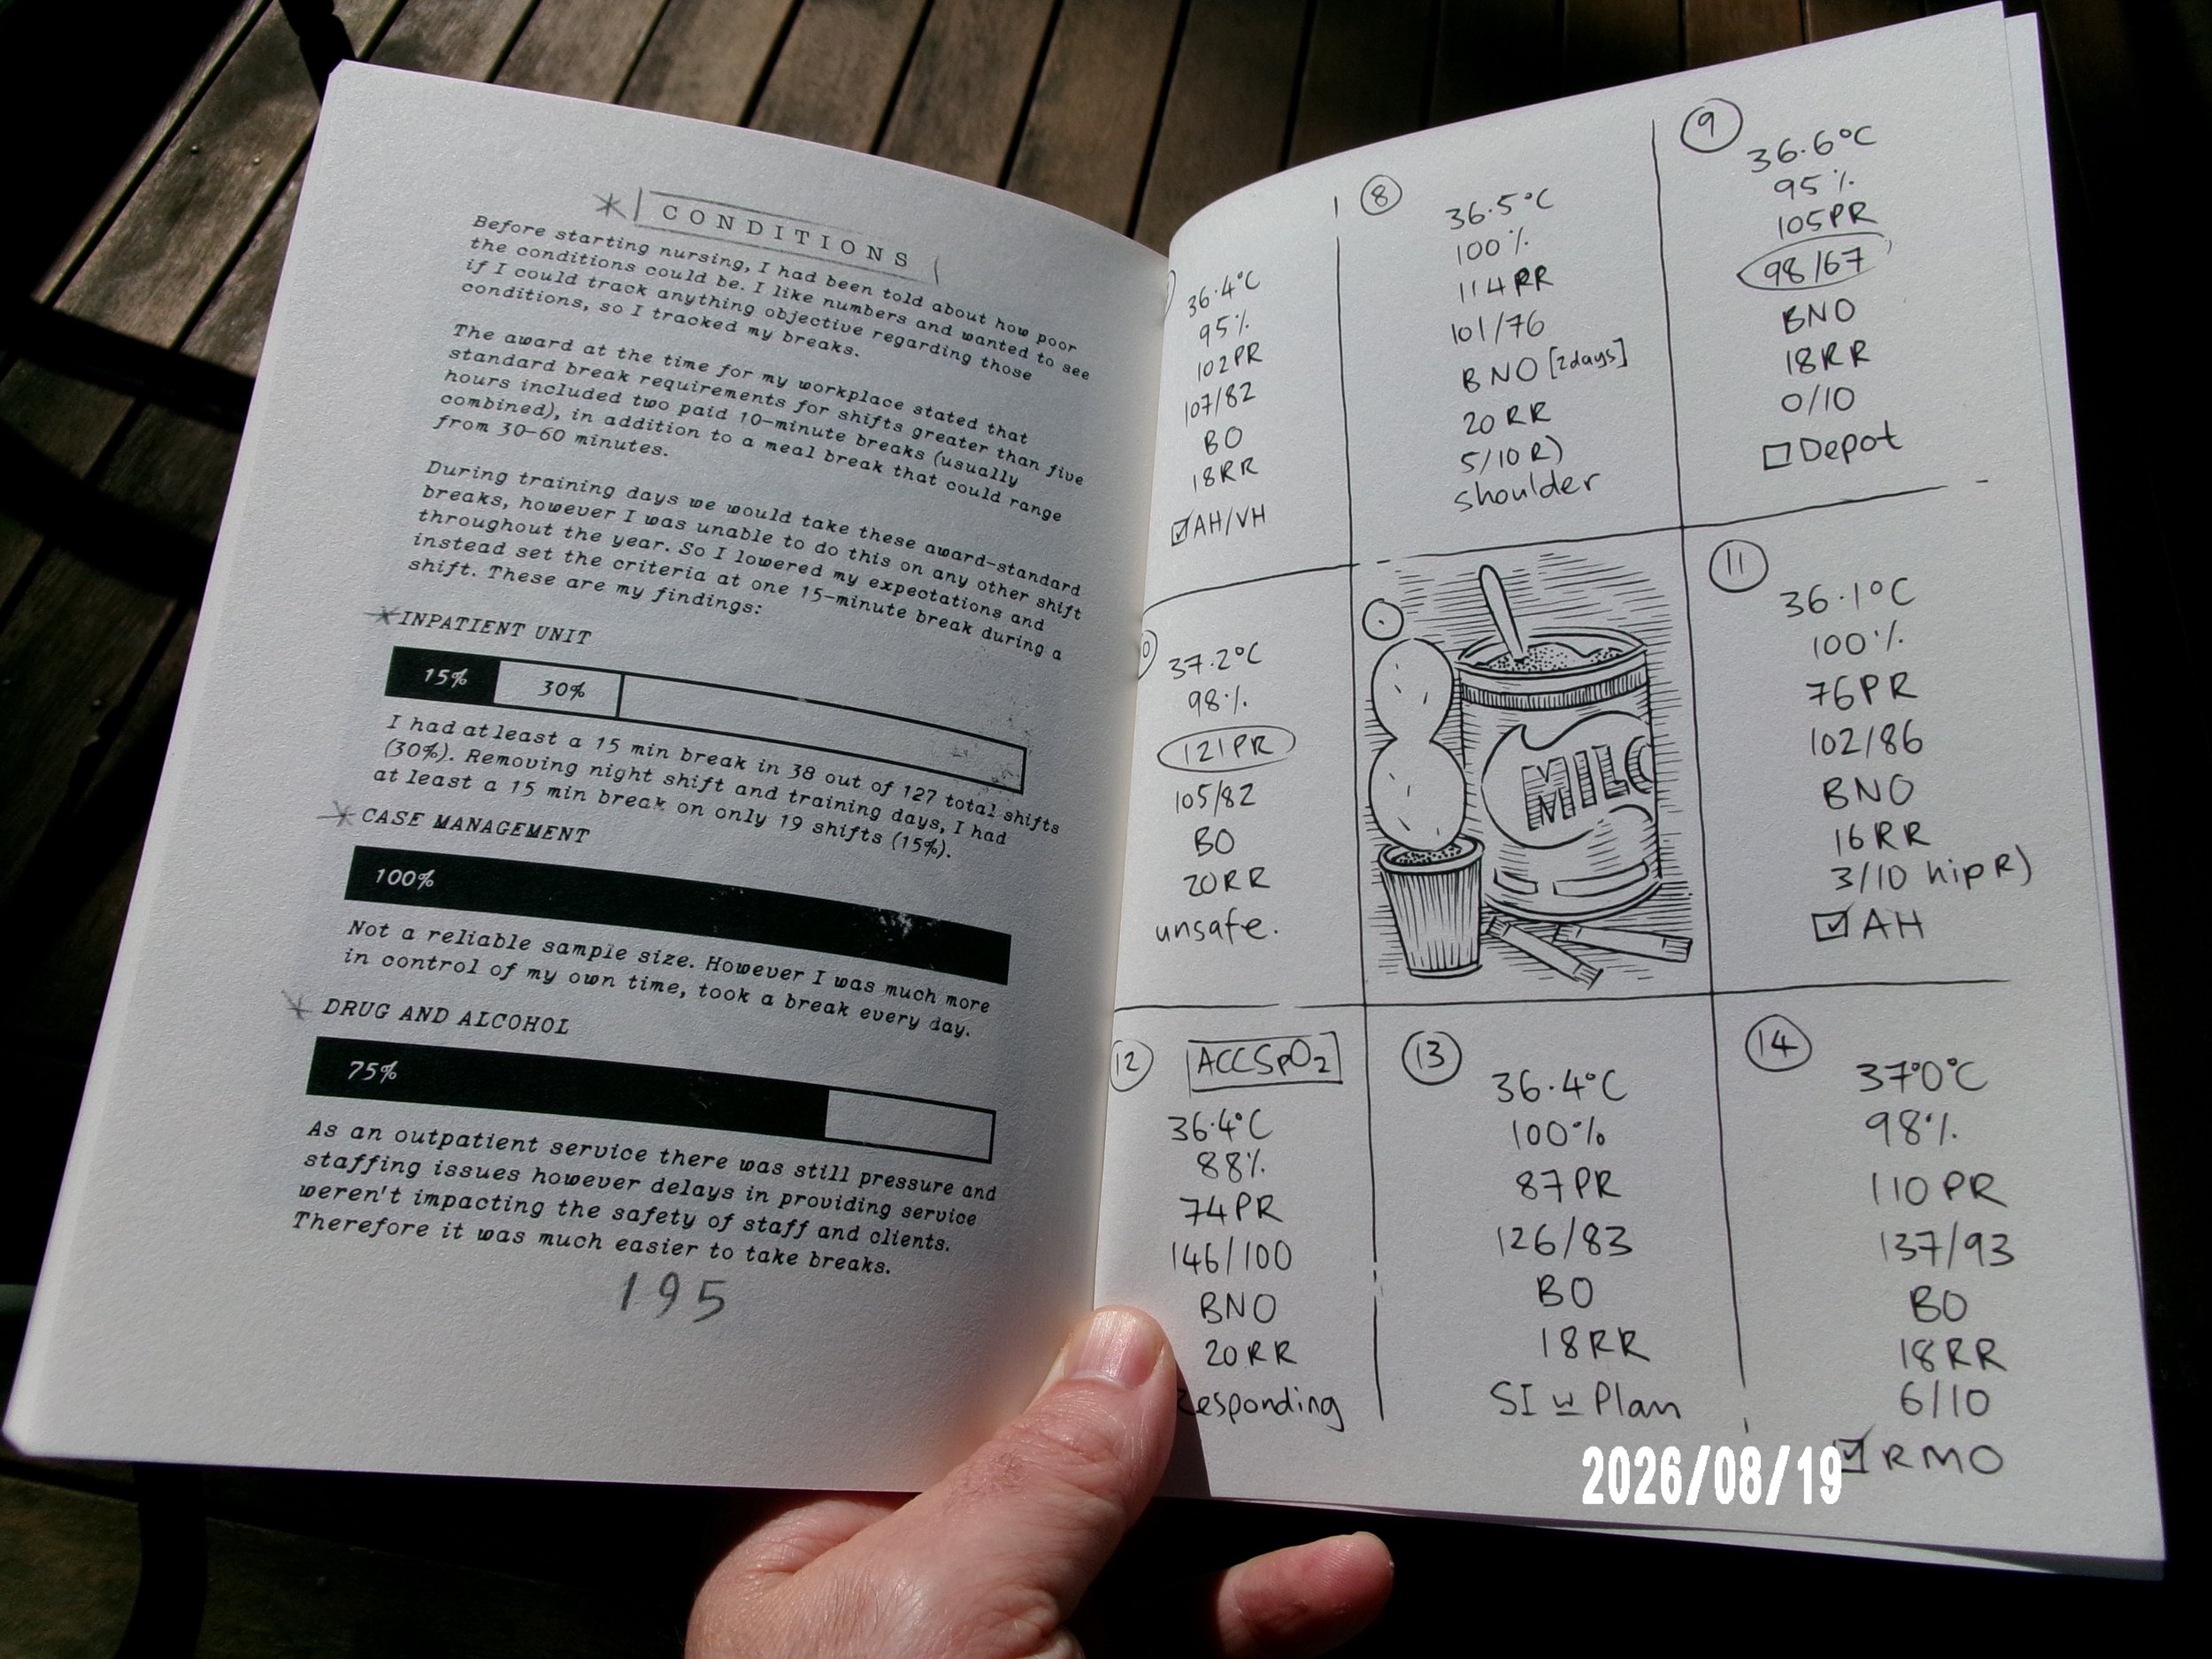 CONDITIONS
Before starting nursing, I had been told about how poor
the conditions could be. I like numbers and wanted to see
if I could track anything objective regarding those
conditions, so I tracked my breaks.
The award at the time for my workplace stated that
standard break requirements for shifts greater than five
hours included two paid 10-minute breaks (usually
combined), in addition to a meal break that could range
from 30-60 minutes.
During training days we would take these award-standard
breaks, however I was unable to do this on any other shift
throughout the year. So I lowered my expectations and
instead set the criteria at one 15-minute break during a
shift. These are my findings:
INPATIENT UNIT
15% 30%
I had atleast a 15 min break in 38 out of 127 total shifts
(30%). Removing night shift and training days, I had
at least a 15 min break on only 19 shifts (15%).
CASE MANAGEMENT
100%
Not a reliable sample size. However I was much more
in control of my own time, took a break every day.
DRUG AND ALCOHOL
75%
As an outpatient service there was still pressure and
staffing issues however delays in providing service
weren't impacting the safety of staff and clients.
Therefore it was much easier to take breaks.
195
36.4°C
95%
102PR
107/82
BO
18RR
☑AH/VH
8
36.5°C
100%
114PR
101/76
BNO [2days]
20RR
5/10 R)
shoulder
9
36.6°C
95%
105PR
98/67
BNO
18RR
0/10
☐Depot
37.2°C
98%
121PR
105/82
BO
20RR
unsafe.
MILO
11
36.1°C
100%
76PR
102/86
BNO
16RR
3/10 hip R)
☑AH
12
ACCSpO2
36.4°C
88%
74PR
146/100
BNO
20RR
Responding
13
36.4°C
100%
87PR
126/83
BO
18RR
SI w Plan
14
37°0°C
98%
110PR
137/93
BO
18RR
6/10
☑RMO
2026/08/19